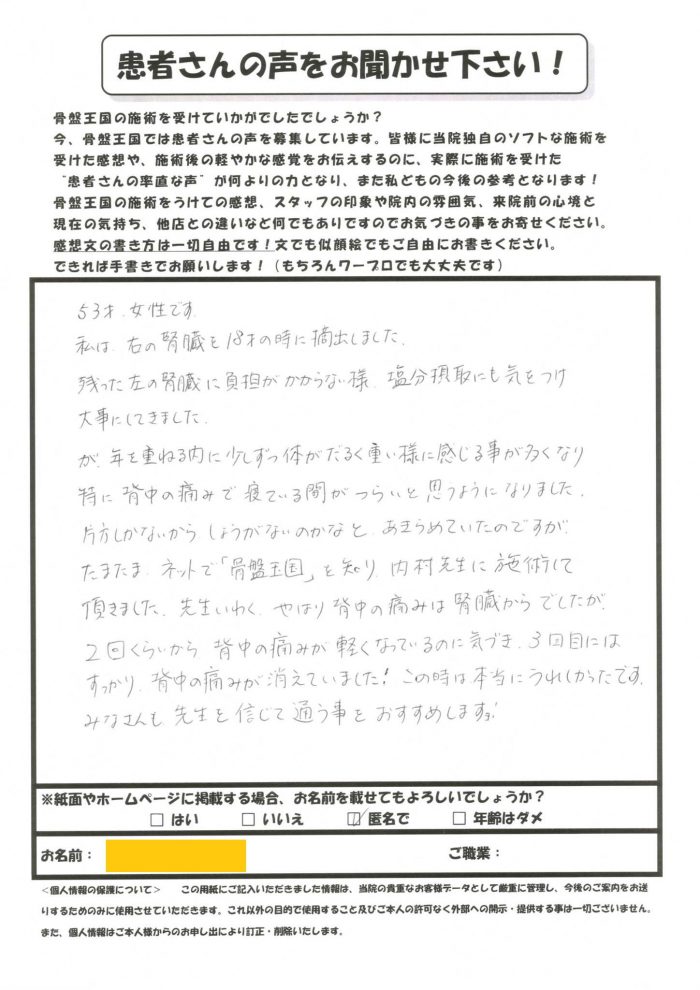 患者さんの声をお聞かせ下さい！
骨盤王国の施術を受けていかがでしたでしょうか？
今、骨盤王国では患者さんの声を募集しています。皆様に当院独自のソフトな施術を
受けた感想や、施術後の軽やかな感覚をお伝えするのに、実際に施術を受けた
"患者さんの率直な声"が何よりの力となり、また私どもの今後の参考となります！
骨盤王国の施術をうけての感想、スタッフの印象や院内の雰囲気、来院前の心境と
現在の気持ち、他店との違いなど何でもありですのでお気づきの事をお寄せください。
感想文の書き方は一切自由です！文でも似顔絵でもご自由にお書きください。
できれば手書きでお願いします！（もちろんワープロでも大丈夫です）
53才．女性です．
私は、右の腎臓を18才の時に摘出しました．
残った左の腎臓に負担がかからない様．塩分摂取にも気をつけ
大事にしてきました．
が．年を重ねる内に少しずつ体がだるく重い様に感じる事が多くなり
特に背中の痛みで寝ている間がつらいと思うようになりました．
片方しかないからしょうがないのかなと、あきらめていたのですが
たまたま．ネットで「骨盤王国」を知り．内村先生に施術して
頂きました．先生いわく．やはり背中の痛みは腎臓からでしたが．
2回くらいから背中の痛みが軽くなっているのに気づき．3回目には
すっかり．背中の痛みが消えていました！この時は本当にうれしかったです．
みなさんも先生を信じて通う事をおすすめしますョ！
※紙面やホームページに掲載する場合、お名前を載せてもよろしいでしょうか？
□ はい □ いいえ ☑ 匿名で □ 年齢はダメ
お名前： ご職業：
＜個人情報の保護について＞ この用紙にご記入いただきました情報は、当院の貴重なお客様データとして厳重に管理し、今後のご案内をお送
りするためのみに使用させていただきます。これ以外の目的で使用すること及びご本人の許可なく外部への開示・提供する事は一切ございません。
また、個人情報はご本人様からのお申し出により訂正・削除いたします。